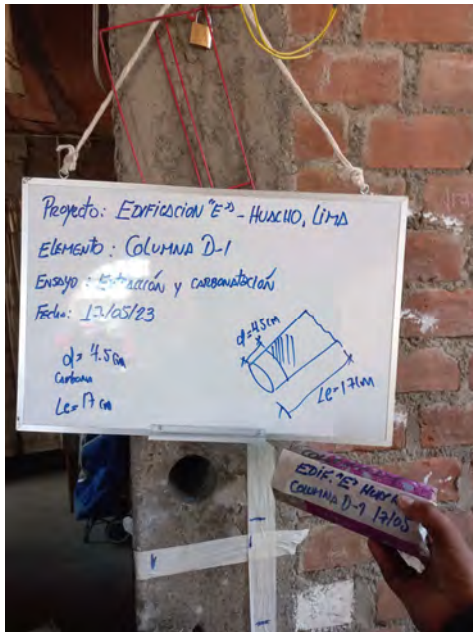 Proyecto: EDIFICACION "E" - HUACHO, LIMA
ELEMENTO: COLUMNA D-1
ENSAYO: EXTRACCIÓN y CARBONATACIÓN
Fecha: 17/05/23
d = 4.5cm
carbona
Le = 17cm
d=4.5cm
Le=17cm
EDIF. "E" HUACH
COLUMNA D-1 17/05